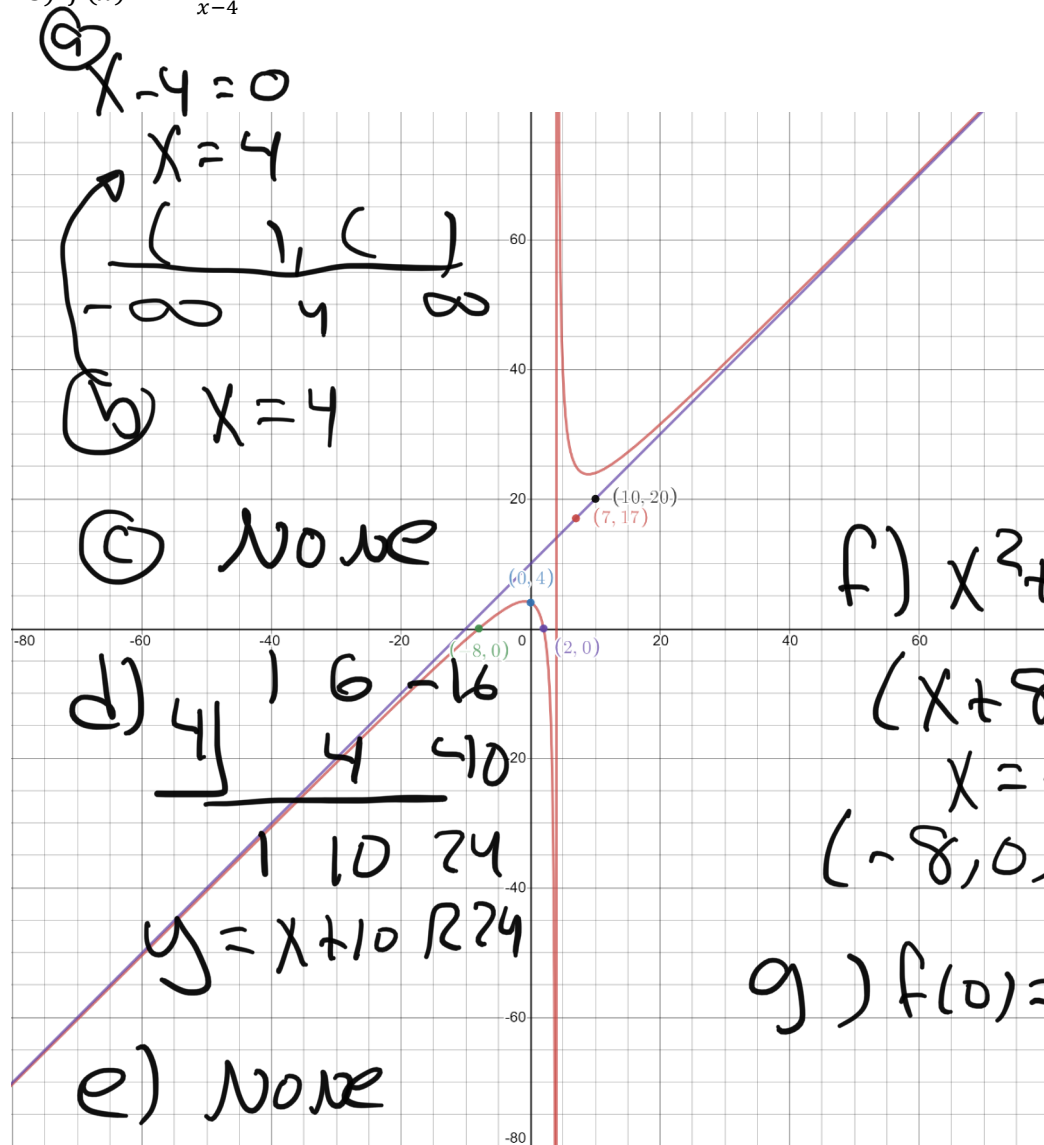 x−4
ⓐ
x-4=0
x=4
( ) ( )
-∞ 4 ∞
ⓑ x=4
ⓒ None
d) 4| 1 6 -16
4 40
1 10 24
y=x+10 R24
e) None
f) x²+
(x+8
x=
(-8,0
g) f(0)=
60
40
20
-80 -60 -40 -20 0 20 40 60
-20
-40
-60
-80
(10, 20)
(7, 17)
(0, 4)
(−8, 0)
(2, 0)